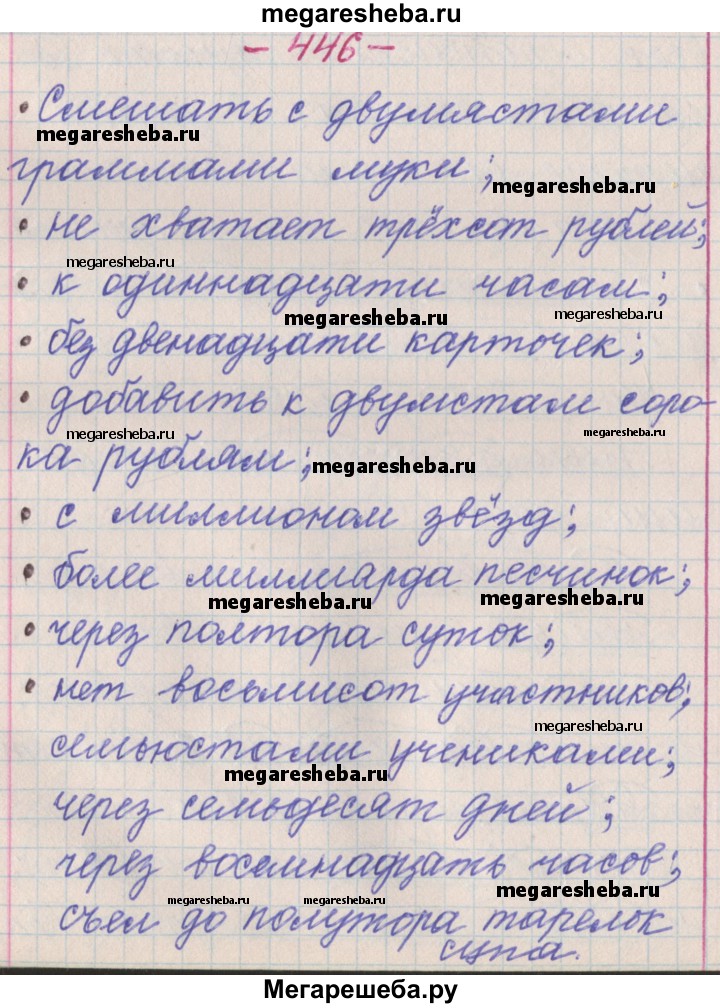 megaresheba.ru
- 446 -
• Смешать с двумястами
megaresheba.ru
граммами муки;
megaresheba.ru
• не хватает трёхсот рублей;
megaresheba.ru
• к одиннадцати часам;
megaresheba.ru
megaresheba.ru
• без двенадцати карточек;
• добавить к двумстам соро-
megaresheba.ru
megaresheba.ru
ка рублям;
megaresheba.ru
• с миллионом звёзд;
• более миллиарда песчинок;
megaresheba.ru
megaresheba.ru
• через полтора суток;
• нет восьмисот участников;
megaresheba.ru
семьюстами учениками;
megaresheba.ru
через семьдесят дней;
через восемнадцать часов;
megaresheba.ru
megaresheba.ru
megaresheba.ru
съел до полутора тарелок
супа.
Мегарешеба.ру